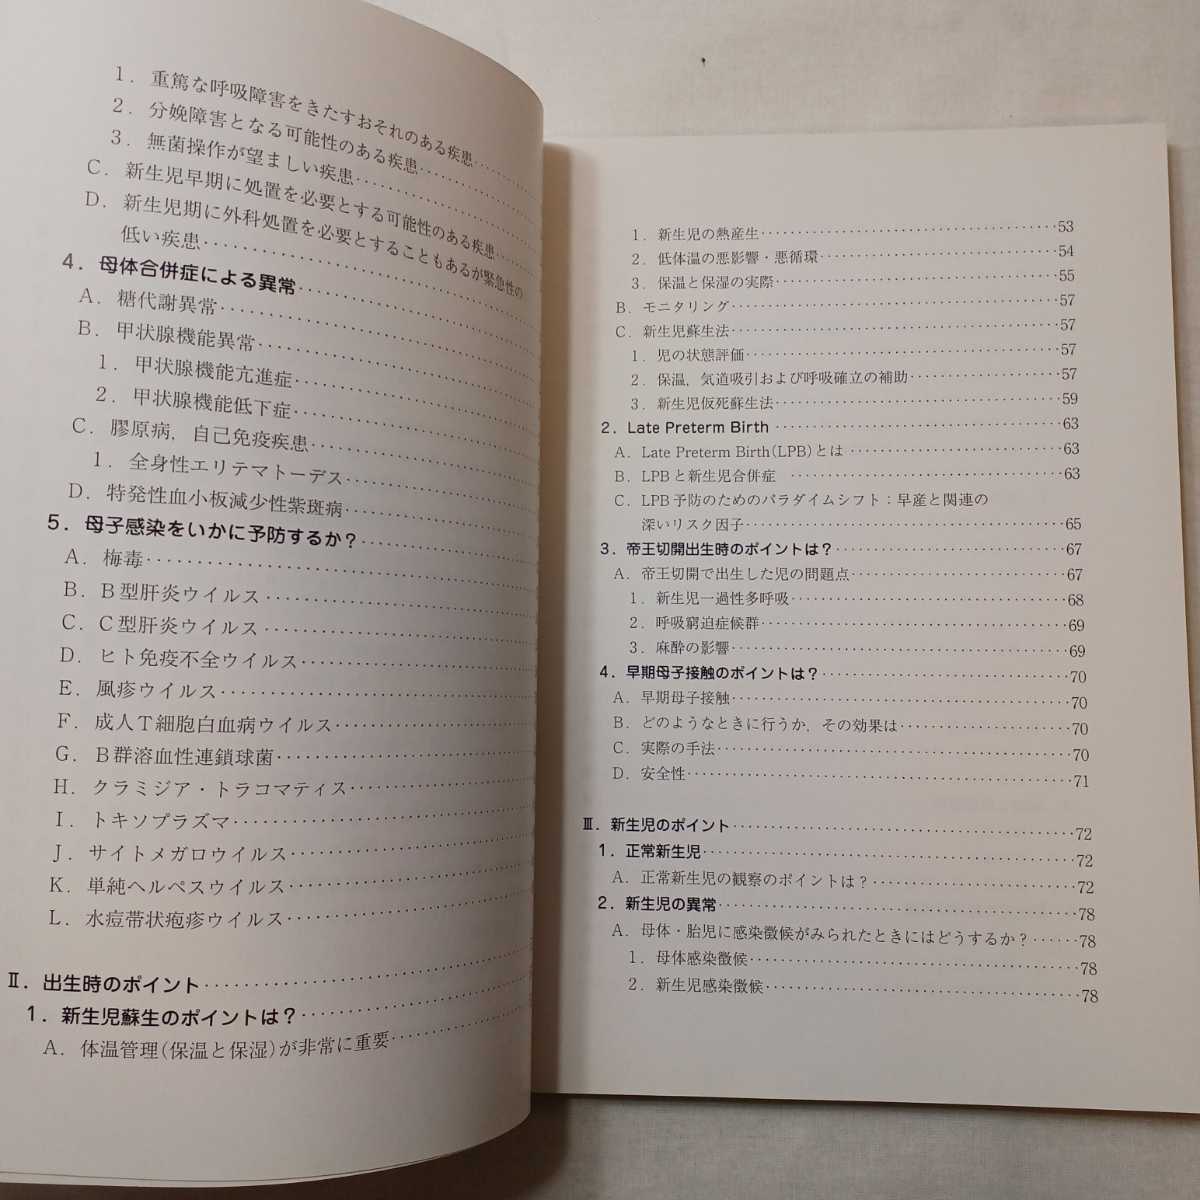 1．重篤な呼吸障害をきたすおそれのある疾患
2．分娩障害となる可能性のある疾患
3．無菌操作が望ましい疾患
C．新生児早期に処置を必要とする可能性のある疾患
D．新生児期に外科処置を必要とすることもあるが緊急性の
低い疾患
4．母体合併症による異常
A．糖代謝異常
B．甲状腺機能異常
1．甲状腺機能亢進症
2．甲状腺機能低下症
C．膠原病，自己免疫疾患
1．全身性エリテマトーデス
D．特発性血小板減少性紫斑病
5．母子感染をいかに予防するか？
A．梅毒
B．B型肝炎ウイルス
C．C型肝炎ウイルス
D．ヒト免疫不全ウイルス
E．風疹ウイルス
F．成人T細胞白血病ウイルス
G．B群溶血性連鎖球菌
H．クラミジア・トラコマティス
I．トキソプラズマ
J．サイトメガロウイルス
K．単純ヘルペスウイルス
L．水痘帯状疱疹ウイルス
Ⅱ．出生時のポイント
1．新生児蘇生のポイントは？
A．体温管理(保温と保湿)が非常に重要
1．新生児の熱産生 53
2．低体温の悪影響・悪循環 54
3．保温と保湿の実際 55
B．モニタリング 57
C．新生児蘇生法 57
1．児の状態評価 57
2．保温，気道吸引および呼吸確立の補助 57
3．新生児仮死蘇生法 59
2．Late Preterm Birth 63
A．Late Preterm Birth(LPB)とは 63
B．LPBと新生児合併症 63
C．LPB予防のためのパラダイムシフト：早産と関連の
深いリスク因子 65
3．帝王切開出生時のポイントは？ 67
A．帝王切開で出生した児の問題点 67
1．新生児一過性多呼吸 68
2．呼吸窮迫症候群 69
3．麻酔の影響 69
4．早期母子接触のポイントは？ 70
A．早期母子接触 70
B．どのようなときに行うか，その効果は 70
C．実際の手法 70
D．安全性 71
Ⅲ．新生児のポイント 72
1．正常新生児 72
A．正常新生児の観察のポイントは？ 72
2．新生児の異常 78
A．母体・胎児に感染徴候がみられたときにはどうするか？ 78
1．母体感染徴候 78
2．新生児感染徴候 78